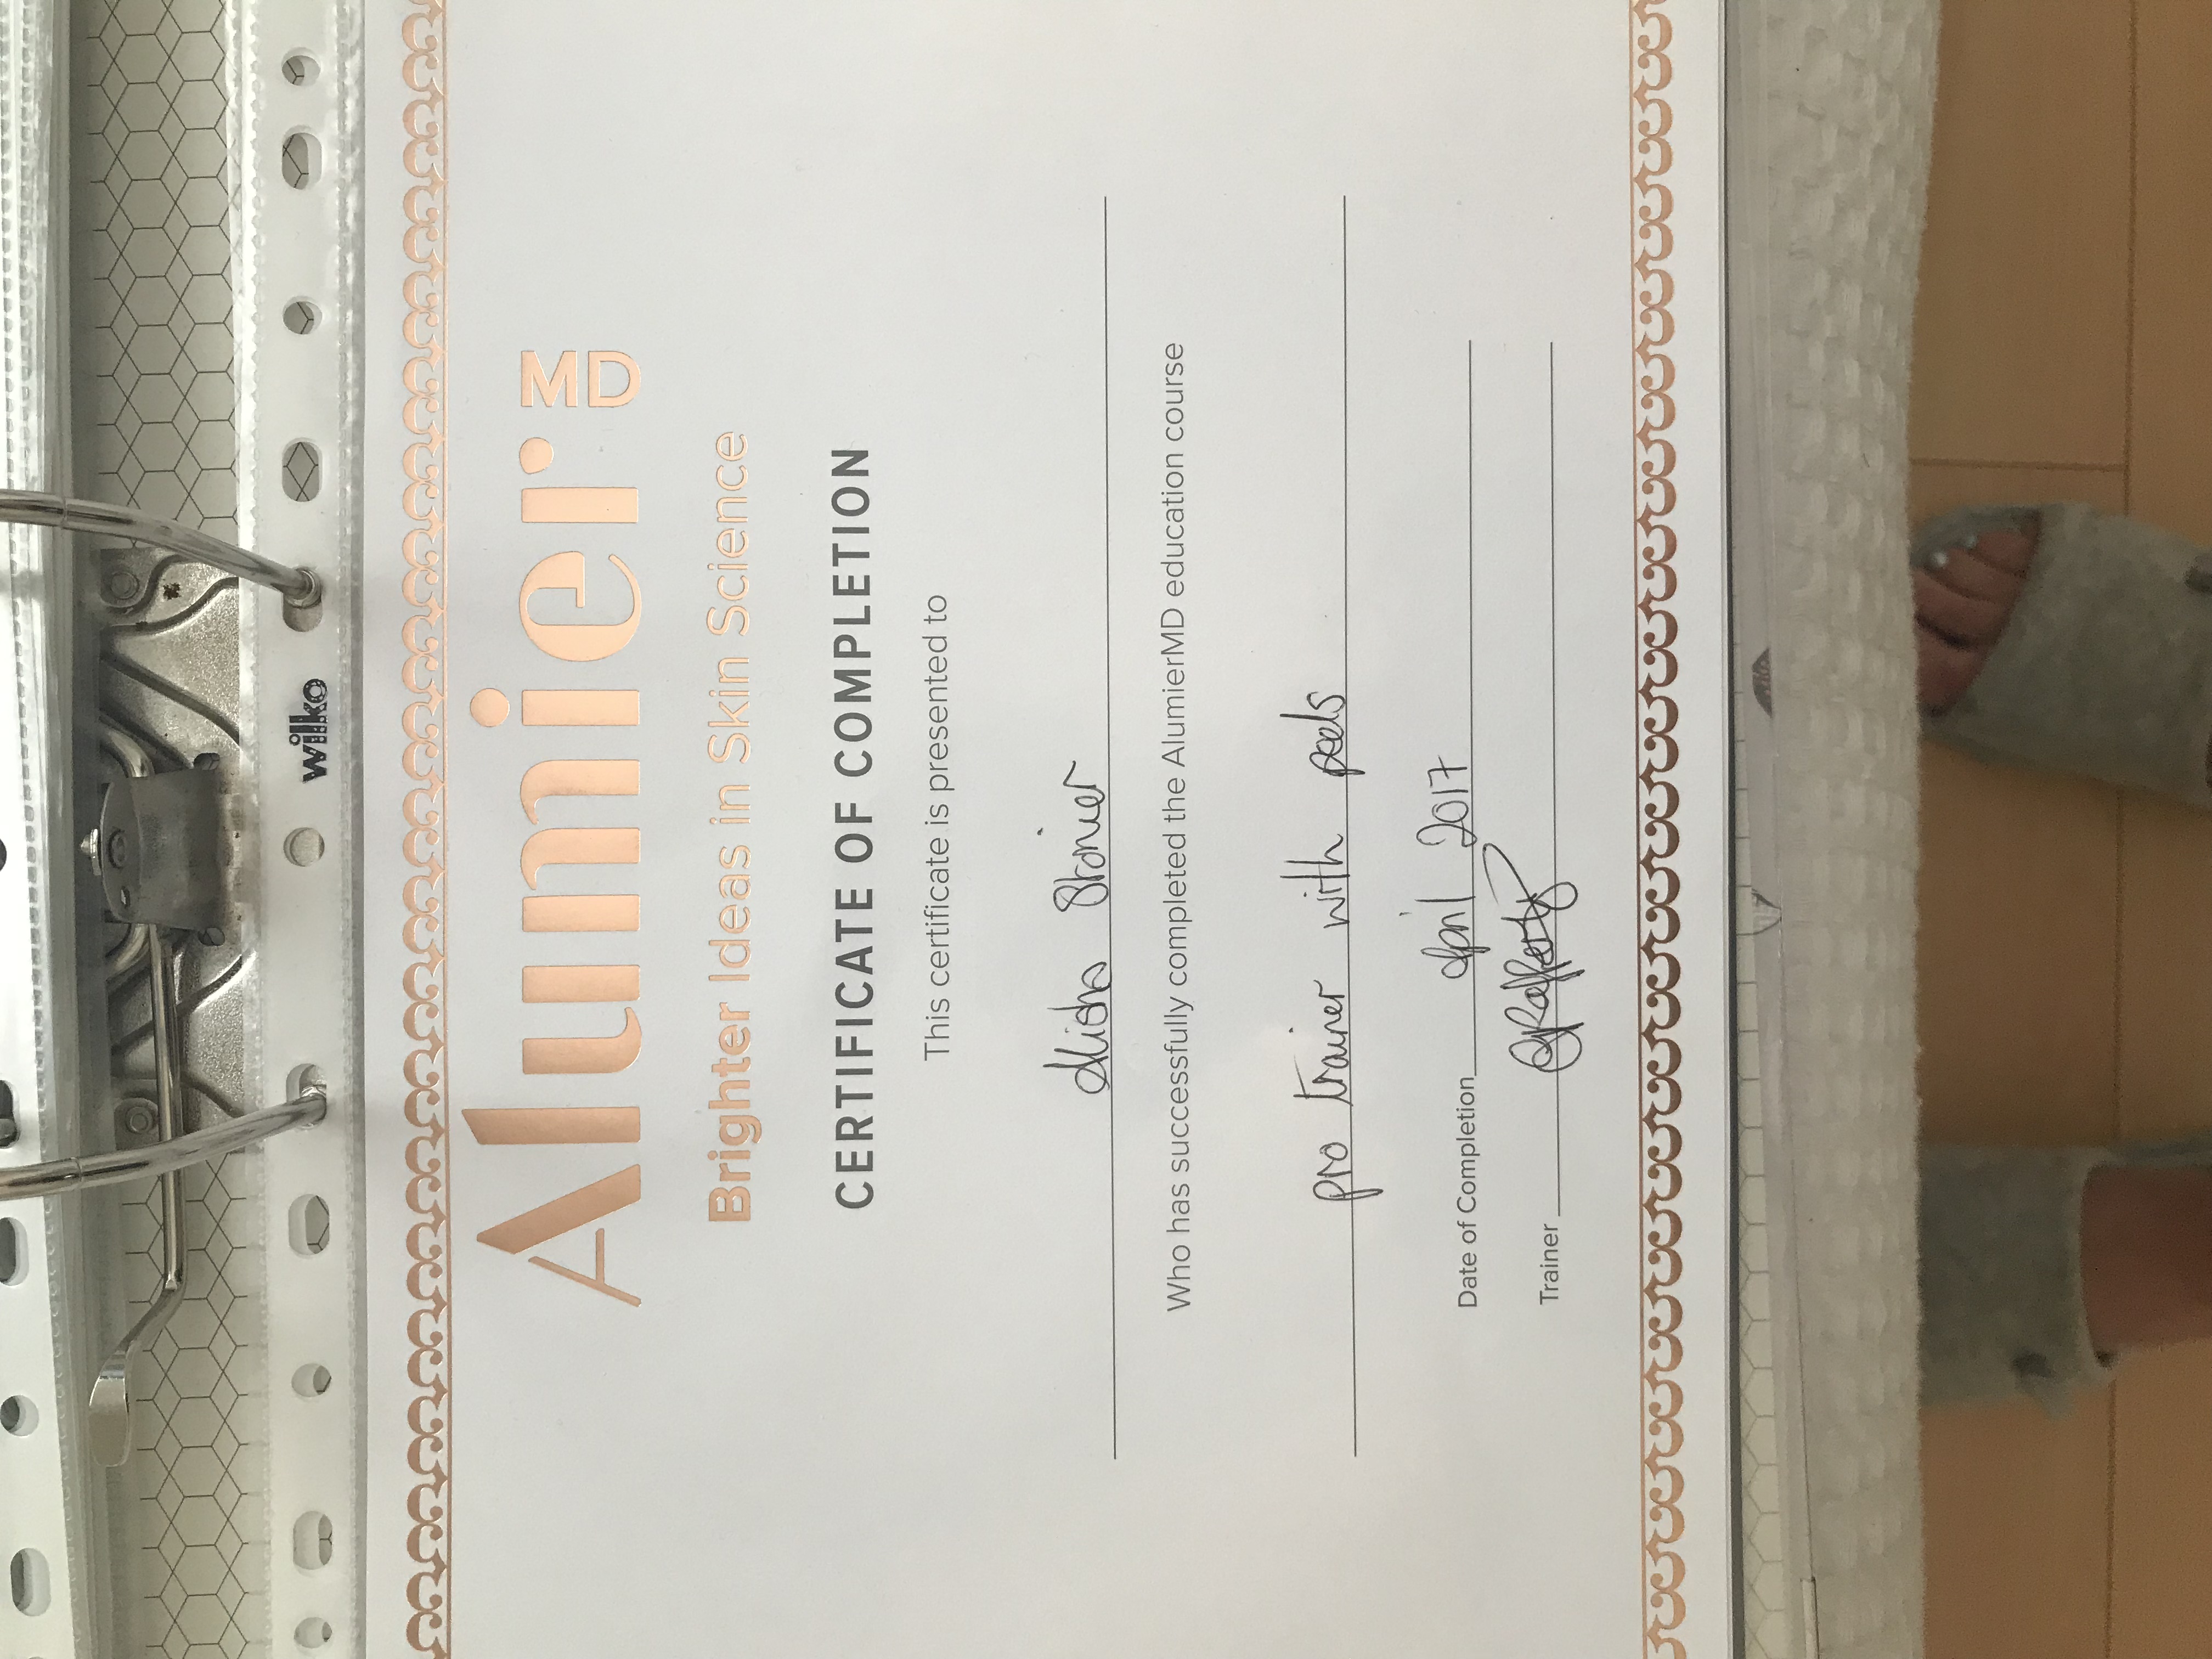 wilko
Alumier MD
Brighter Ideas in Skin Science
CERTIFICATE OF COMPLETION
This certificate is presented to
Alisha Stonier
Who has successfully completed the AlumierMD education course
pro trainer with peels
Date of Completion April 2017
Trainer